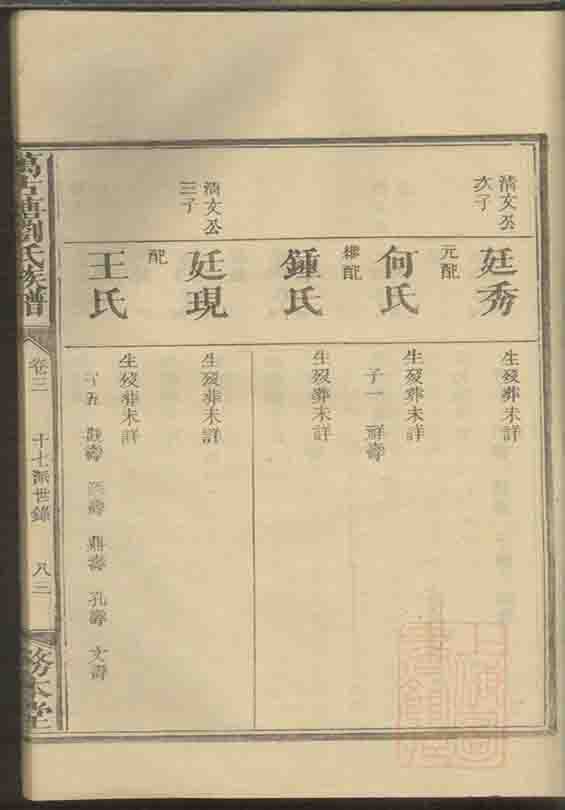 清文公
次子
廷秀
生歿葬未詳
元配
何氏
生歿葬未詳
子一 祥壽
繼配
鍾氏
生歿葬未詳
清文公
三子
廷現
生歿葬未詳
配
王氏
生歿葬未詳
子五 壽 壽 鼎壽 孔壽 文壽
萬古塘劉氏族譜
卷三
十七派世錄
務本堂